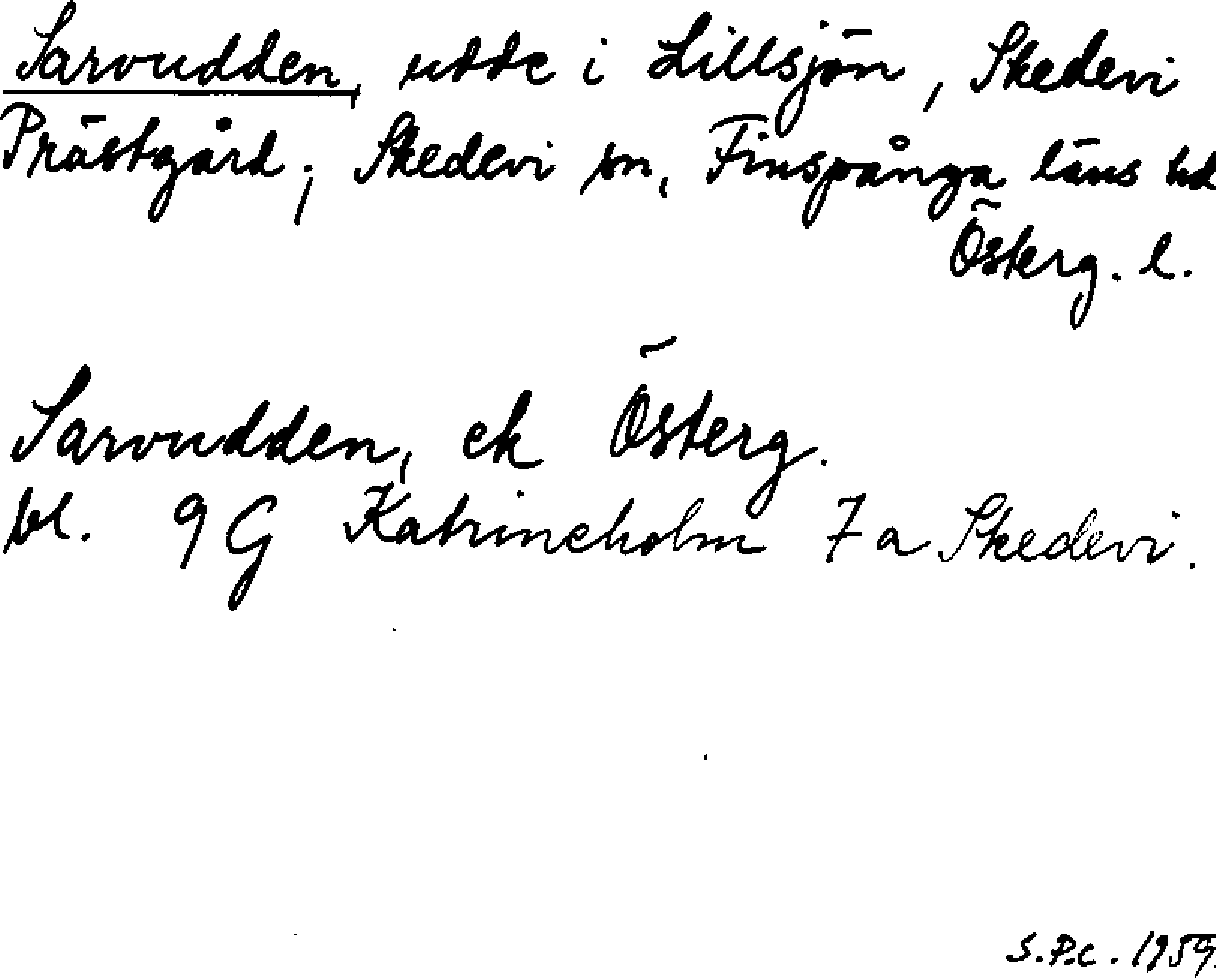 Sarvudden, udde i Lillsjön, Skedevi
Prästgård, Skedevi sn, Finspånga läns hd
Österg. l.
Sarvudden, ek Österg.
bl. 9 G Katrineholm 7 a Skedevi.
S.P.C. 1959.